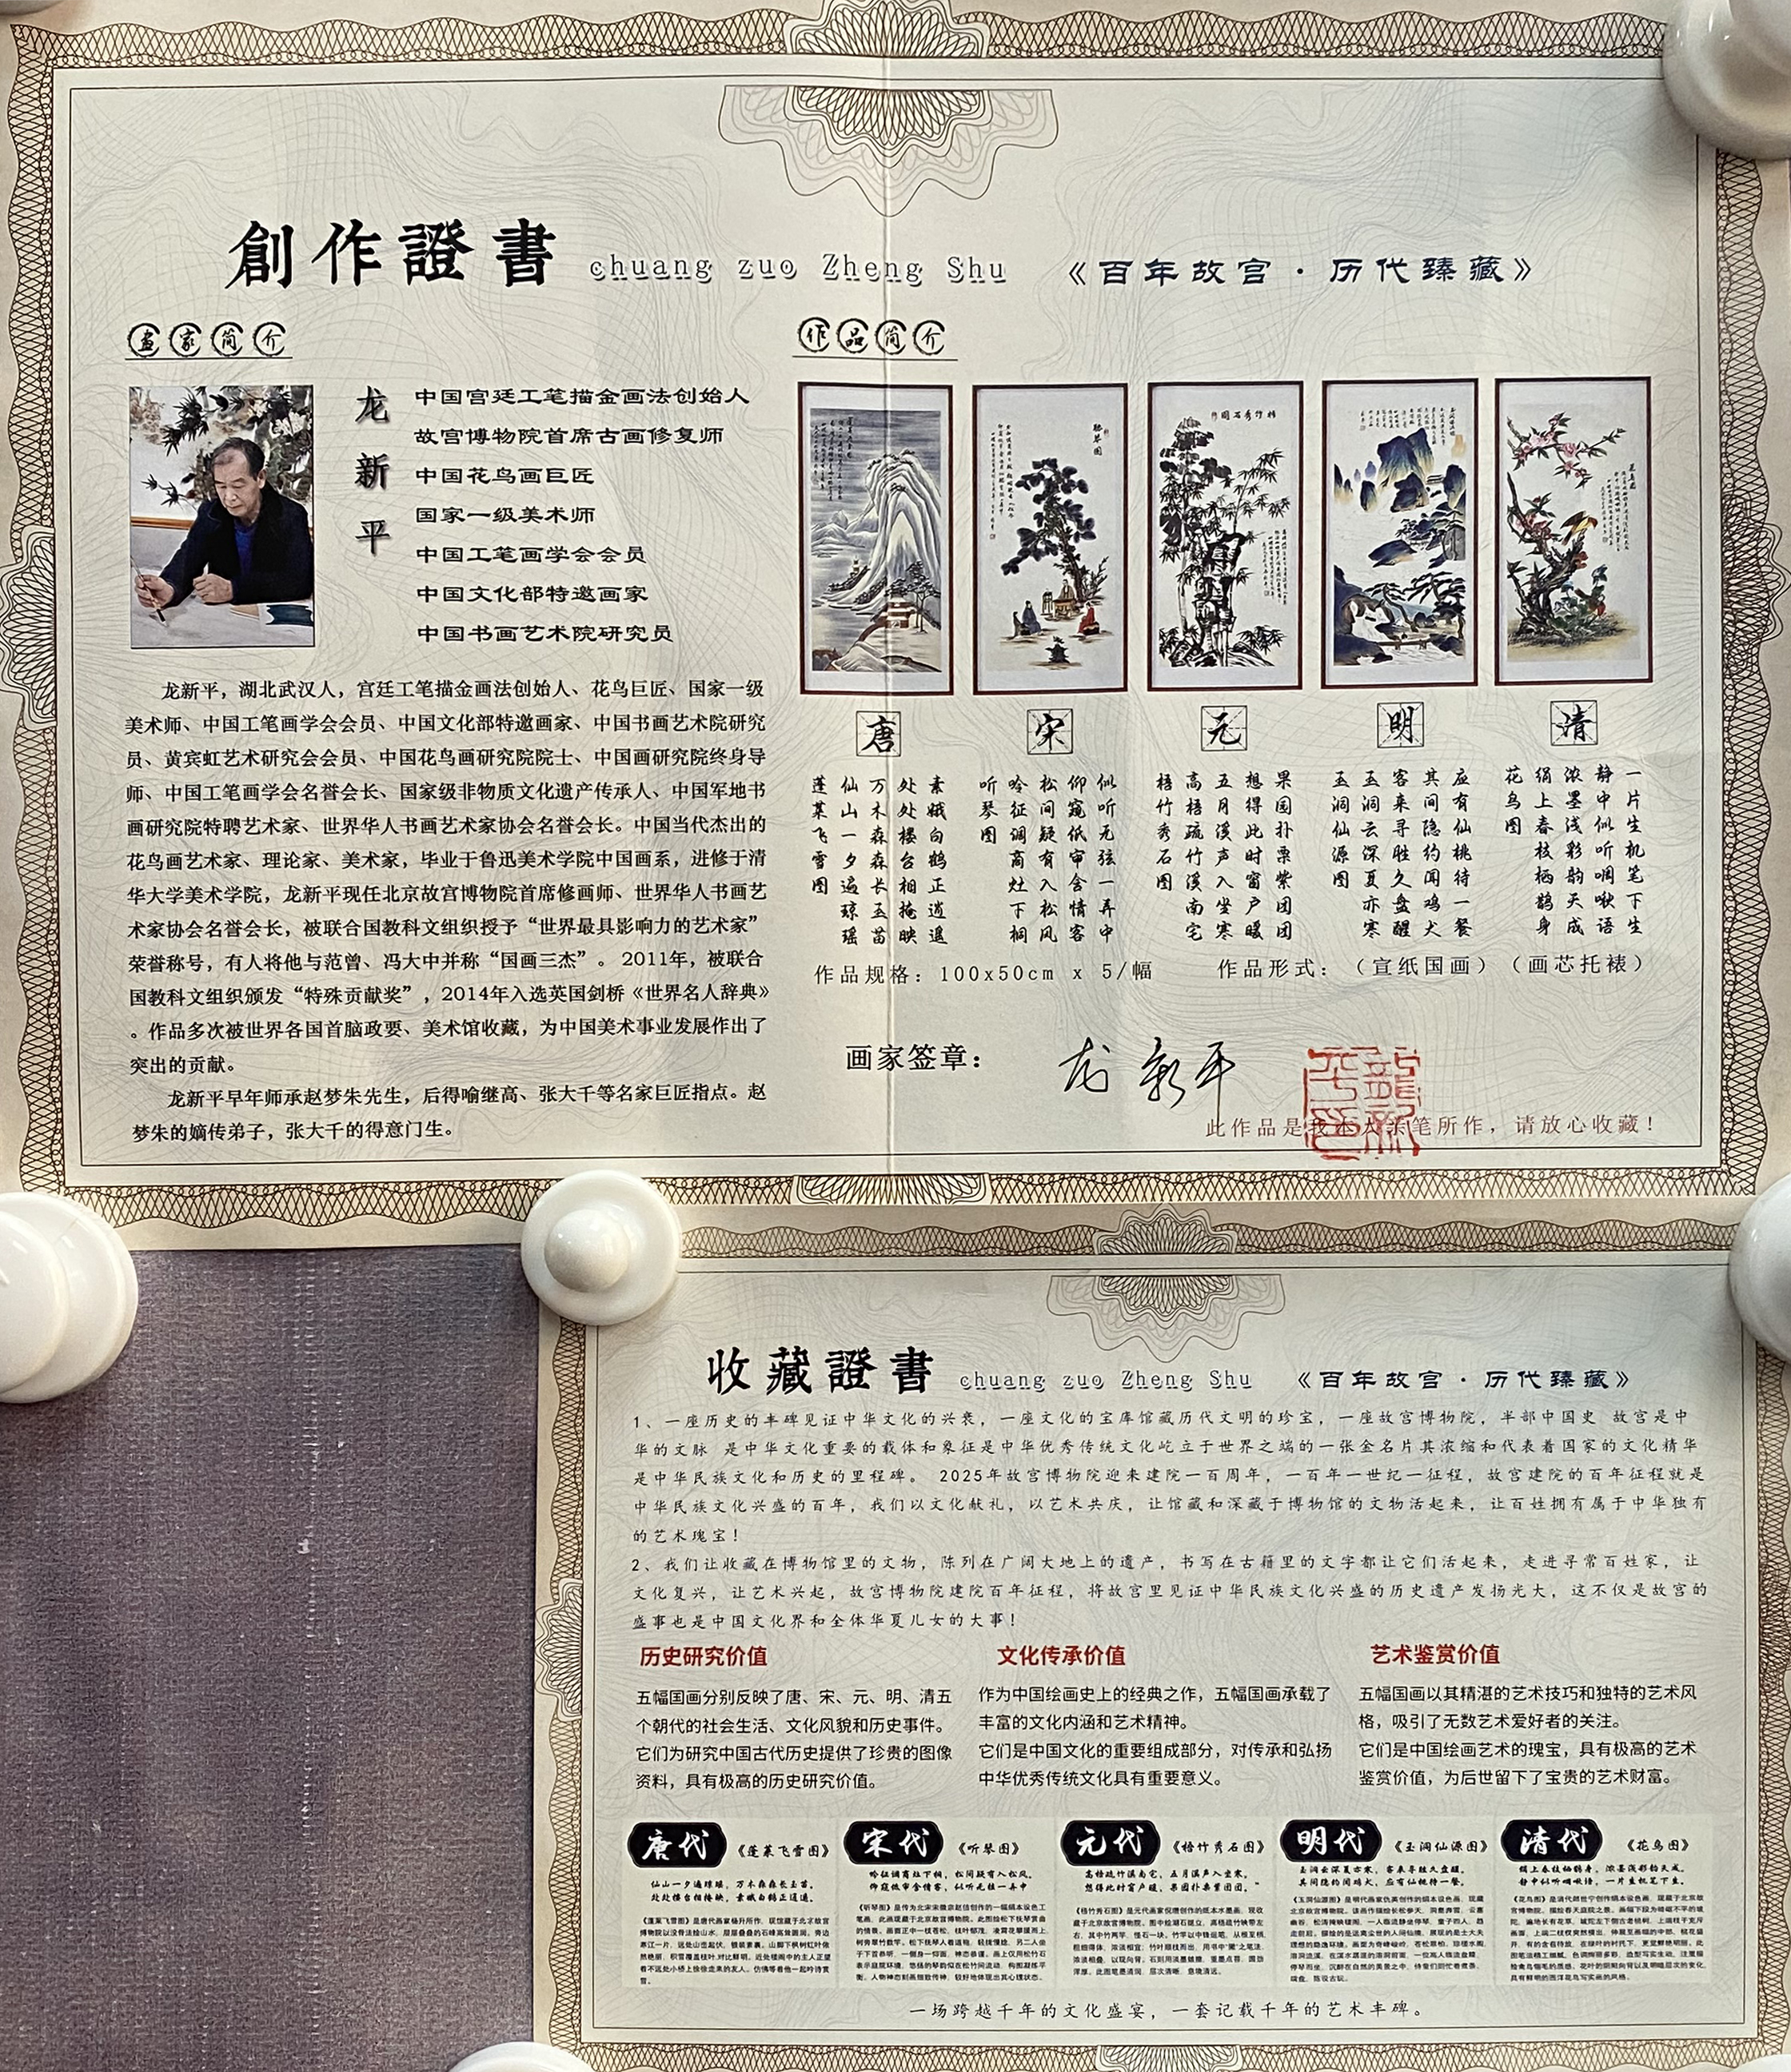 創作證書 chuang zuo Zheng Shu 《百年故宫·历代臻藏》
画家简介
龙新平
中国宫廷工笔描金画法创始人
故宫博物院首席古画修复师
中国花鸟画巨匠
国家一级美术师
中国工笔画学会会员
中国文化部特邀画家
中国书画艺术院研究员
龙新平，湖北武汉人，宫廷工笔描金画法创始人、花鸟巨匠、国家一级
美术师、中国工笔画学会会员、中国文化部特邀画家、中国书画艺术院研究
员、黄宾虹艺术研究会会员、中国花鸟画研究院院士、中国画研究院终身导
师、中国工笔画学会名誉会长、国家级非物质文化遗产传承人、中国军地书
画研究院特聘艺术家、世界华人书画艺术家协会名誉会长。中国当代杰出的
花鸟画艺术家、理论家、美术家，毕业于鲁迅美术学院中国画系，进修于清
华大学美术学院，龙新平现任北京故宫博物院首席修画师、世界华人书画艺
术家协会名誉会长，被联合国教科文组织授予“世界最具影响力的艺术家”
荣誉称号，有人将他与范曾、冯大中并称“国画三杰”。2011年，被联合
国教科文组织颁发“特殊贡献奖”，2014年入选英国剑桥《世界名人辞典》
。作品多次被世界各国首脑政要、美术馆收藏，为中国美术事业发展作出了
突出的贡献。
龙新平早年师承赵梦朱先生，后得喻继高、张大千等名家巨匠指点。赵
梦朱的嫡传弟子，张大千的得意门生。
作品简介
听琴图
梧竹秀石图
唐
蓬莱飞雪图
仙山一夕遍琼瑶
万木森森长玉苗
处处楼台相掩映
素娥白鹤正逍遥
宋
听琴图
吟征调商灶下桐
松间疑有入松风
仰窥低审含情客
似听无弦一弄中
元
梧竹秀石图
高梧疏竹溪南宅
五月溪声入坐寒
想得此时窗户暖
果园扑栗紫团团
明
玉洞仙源图
玉洞云深夏亦寒
客来寻胜久盘醒
其间隐约闻鸡犬
应有仙桃待一餐
清
花鸟图
绢上春枝栖鹊身
浓墨浅彩韵天成
静中似听啁啾语
一片生机笔下生
作品规格：100x50cm x 5/幅 作品形式：（宣纸国画）（画芯托裱）
画家签章： 龙新平
龍新平印
此作品是我本人亲笔所作，请放心收藏！
收藏證書 chuang zuo Zheng Shu 《百年故宫·历代臻藏》
1、一座历史的丰碑见证中华文化的兴衰，一座文化的宝库馆藏历代文明的珍宝，一座故宫博物院，半部中国史 故宫是中
华的文脉 是中华文化重要的载体和象征是中华优秀传统文化屹立于世界之端的一张金名片其浓缩和代表着国家的文化精华
是中华民族文化和历史的里程碑。 2025年故宫博物院迎来建院一百周年，一百年一世纪一征程，故宫建院的百年征程就是
中华民族文化兴盛的百年，我们以文化献礼，以艺术共庆，让馆藏和深藏于博物馆的文物活起来，让百姓拥有属于中华独有
的艺术瑰宝！
2、我们让收藏在博物馆里的文物，陈列在广阔大地上的遗产，书写在古籍里的文字都让它们活起来，走进寻常百姓家，让
文化复兴，让艺术兴起，故宫博物院建院百年征程，将故宫里见证中华民族文化兴盛的历史遗产发扬光大，这不仅是故宫的
盛事也是中国文化界和全体华夏儿女的大事！
历史研究价值
五幅国画分别反映了唐、宋、元、明、清五
个朝代的社会生活、文化风貌和历史事件。
它们为研究中国古代历史提供了珍贵的图像
资料，具有极高的历史研究价值。
文化传承价值
作为中国绘画史上的经典之作，五幅国画承载了
丰富的文化内涵和艺术精神。
它们是中国文化的重要组成部分，对传承和弘扬
中华优秀传统文化具有重要意义。
艺术鉴赏价值
五幅国画以其精湛的艺术技巧和独特的艺术风
格，吸引了无数艺术爱好者的关注。
它们是中国绘画艺术的瑰宝，具有极高的艺术
鉴赏价值，为后世留下了宝贵的艺术财富。
唐代 《蓬莱飞雪图》
仙山一夕遍琼瑶，万木森森长玉苗。
处处楼台相掩映，素娥白鹤正逍遥。
宋代 《听琴图》
吟征调商灶下桐，松间疑有入松风。
仰窥低审含情客，似听无弦一弄中
元代 《梧竹秀石图》
高梧疏竹溪南宅，五月溪声入坐寒。
想得此时窗户暖，果园扑栗紫团团。
明代 《玉洞仙源图》
玉洞云深夏亦寒，客来寻胜久盘醒。
其间隐约闻鸡犬，应有仙桃待一餐。
清代 《花鸟图》
绢上春枝栖鹊身，浓墨浅彩韵天成。
静中似听啁啾语，一片生机笔下生。
一场跨越千年的文化盛宴，一套记载千年的艺术丰碑。